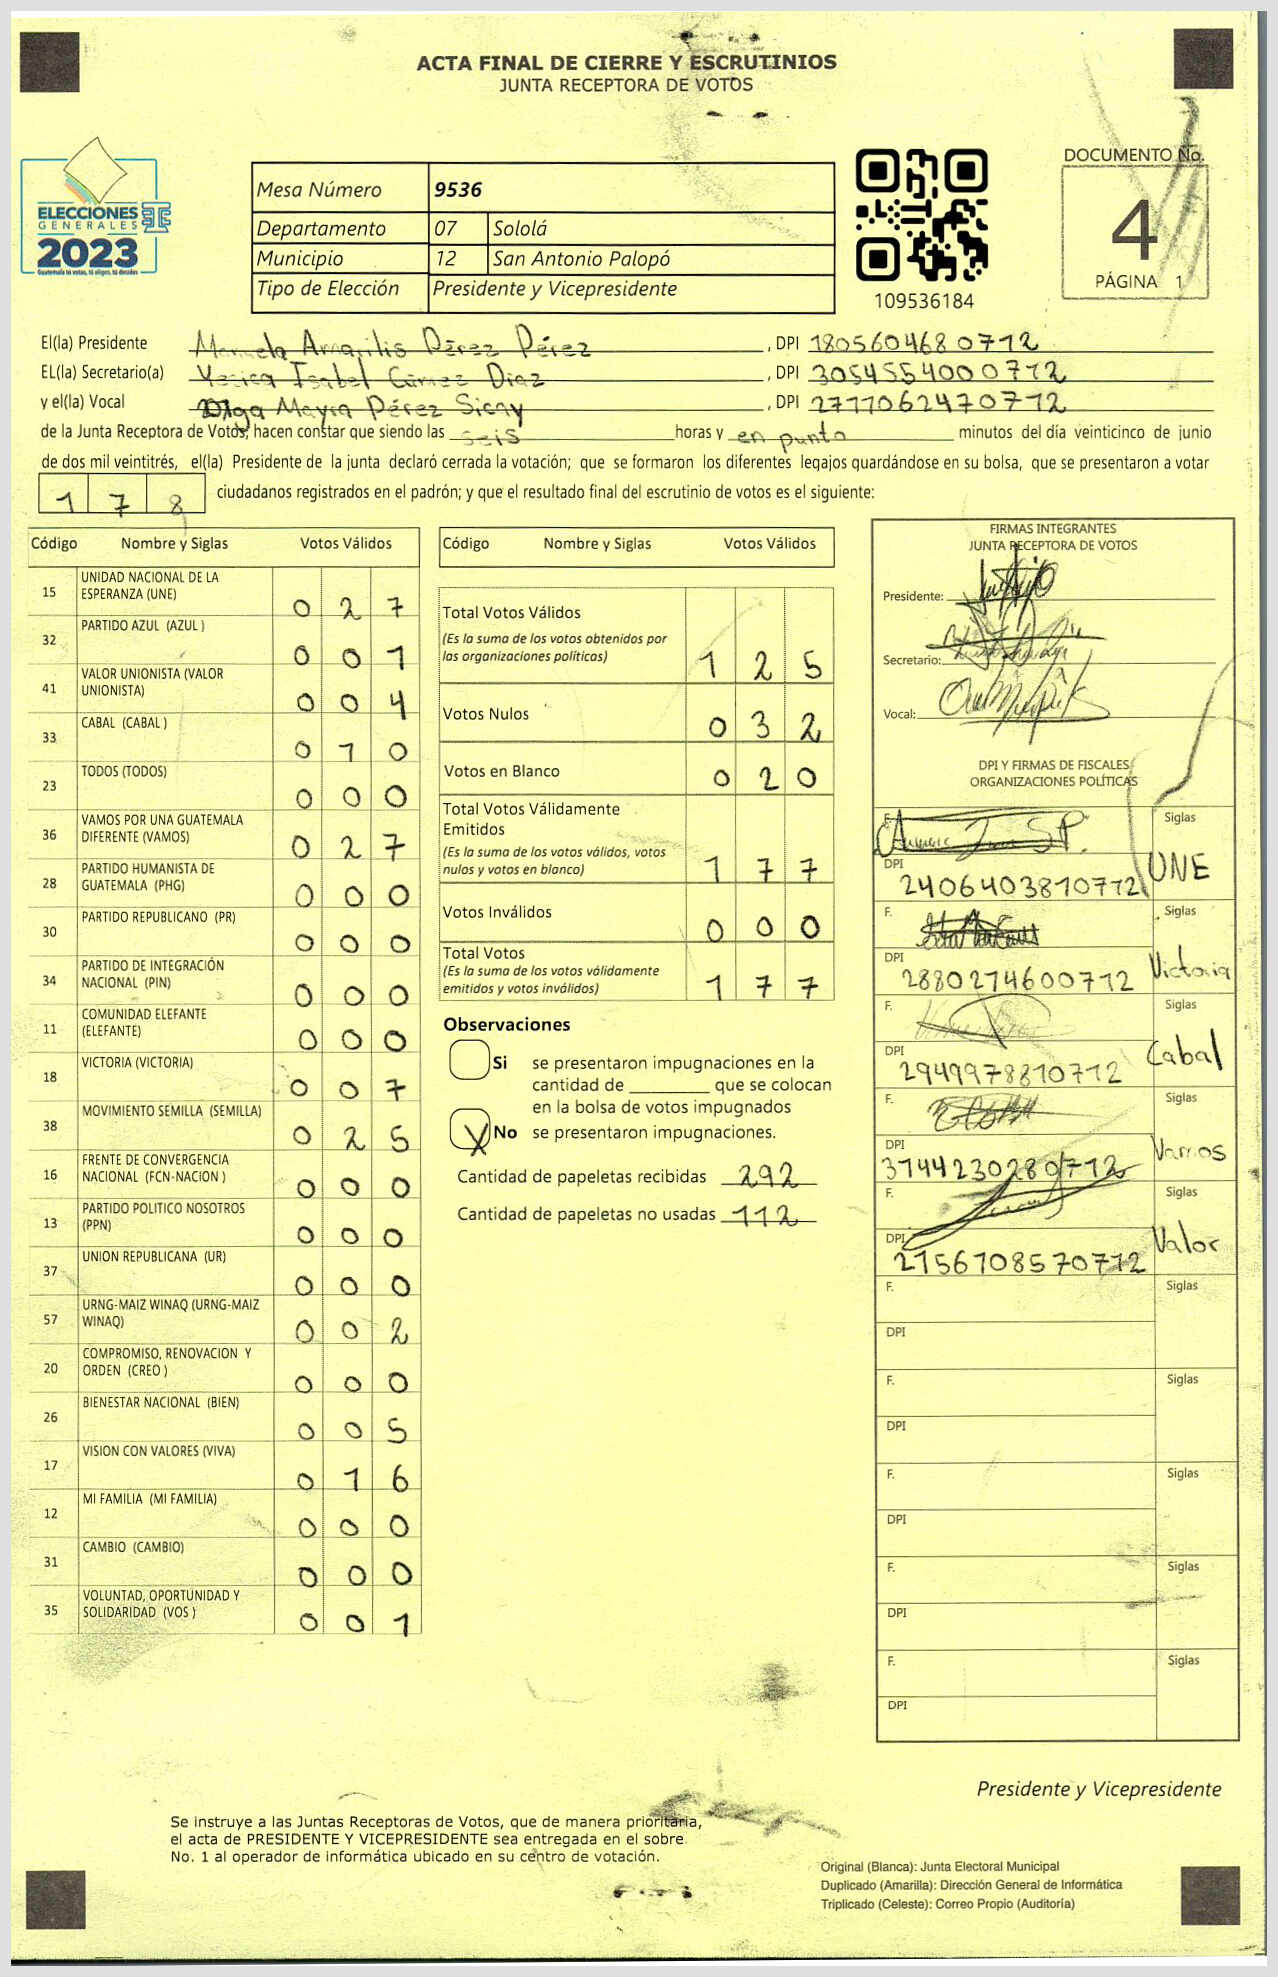 ACTA FINAL DE CIERRE Y ESCRUTINIOS
JUNTA RECEPTORA DE VOTOS
ELECCIONES
GENERALES
2023
Guatemala tú votas, tú eliges, tú decides
Mesa Número 9536
Departamento 07 Sololá
Municipio 12 San Antonio Palopó
Tipo de Elección Presidente y Vicepresidente
109536184
DOCUMENTO No.
4
PÁGINA 1
El(la) Presidente Manuela Amarilis Pérez Pérez, DPI 1805604680712
EL(la) Secretario(a) Yesica Isabel Gómez Diaz, DPI 3054554000712
y el(la) Vocal Olga Mayra Pérez Sicay, DPI 2717062470712
de la Junta Receptora de Votos, hacen constar que siendo las seis horas y en punto minutos del día veinticinco de junio
de dos mil veintitrés, el(la) Presidente de la junta declaró cerrada la votación; que se formaron los diferentes legajos quardándose en su bolsa, que se presentaron a votar
178 ciudadanos registrados en el padrón; y que el resultado final del escrutinio de votos es el siguiente:
Código Nombre y Siglas Votos Válidos
15 UNIDAD NACIONAL DE LA ESPERANZA (UNE) 0 2 7
32 PARTIDO AZUL (AZUL ) 0 0 1
41 VALOR UNIONISTA (VALOR UNIONISTA) 0 0 4
33 CABAL (CABAL ) 0 1 0
23 TODOS (TODOS) 0 0 0
36 VAMOS POR UNA GUATEMALA DIFERENTE (VAMOS) 0 2 7
28 PARTIDO HUMANISTA DE GUATEMALA (PHG) 0 0 0
30 PARTIDO REPUBLICANO (PR) 0 0 0
34 PARTIDO DE INTEGRACIÓN NACIONAL (PIN) 0 0 0
11 COMUNIDAD ELEFANTE (ELEFANTE) 0 0 0
18 VICTORIA (VICTORIA) 0 0 7
38 MOVIMIENTO SEMILLA (SEMILLA) 0 2 5
16 FRENTE DE CONVERGENCIA NACIONAL (FCN-NACION ) 0 0 0
13 PARTIDO POLITICO NOSOTROS (PPN) 0 0 0
37 UNION REPUBLICANA (UR) 0 0 0
57 URNG-MAIZ WINAQ (URNG-MAIZ WINAQ) 0 0 2
20 COMPROMISO, RENOVACION Y ORDEN (CREO ) 0 0 0
26 BIENESTAR NACIONAL (BIEN) 0 0 5
17 VISION CON VALORES (VIVA) 0 1 6
12 MI FAMILIA (MI FAMILIA) 0 0 0
31 CAMBIO (CAMBIO) 0 0 0
35 VOLUNTAD, OPORTUNIDAD Y SOLIDARIDAD (VOS ) 0 0 1
Código Nombre y Siglas Votos Válidos
Total Votos Válidos 1 2 5
(Es la suma de los votos obtenidos por
las organizaciones políticas)
Votos Nulos 0 3 2
Votos en Blanco 0 2 0
Total Votos Válidamente
Emitidos 1 7 7
(Es la suma de los votos válidos, votos
nulos y votos en blanco)
Votos Inválidos 0 0 0
Total Votos 1 7 7
(Es la suma de los votos válidamente
emitidos y votos inválidos)
Observaciones
Si se presentaron impugnaciones en la
cantidad de ________ que se colocan
en la bolsa de votos impugnados
X No se presentaron impugnaciones.
Cantidad de papeletas recibidas 292
Cantidad de papeletas no usadas 112
FIRMAS INTEGRANTES
JUNTA RECEPTORA DE VOTOS
Presidente:
Secretario:
Vocal:
DPI Y FIRMAS DE FISCALES
ORGANIZACIONES POLÍTICAS
F. Siglas
DPI 2406403810712 UNE
F. Siglas
DPI 2880274600712 Victoria
F. Siglas
DPI 2949978810712 Cabal
F. Siglas
DPI 3744230280712 Vamos
F. Siglas
DPI 2156708570712 Valor
F. Siglas
DPI
F. Siglas
DPI
F. Siglas
DPI
F. Siglas
DPI
F. Siglas
DPI
Presidente y Vicepresidente
Se instruye a las Juntas Receptoras de Votos, que de manera prioritaria,
el acta de PRESIDENTE Y VICEPRESIDENTE sea entregada en el sobre
No. 1 al operador de informática ubicado en su centro de votación.
Original (Blanca): Junta Electoral Municipal
Duplicado (Amarilla): Dirección General de Informática
Triplicado (Celeste): Correo Propio (Auditoría)